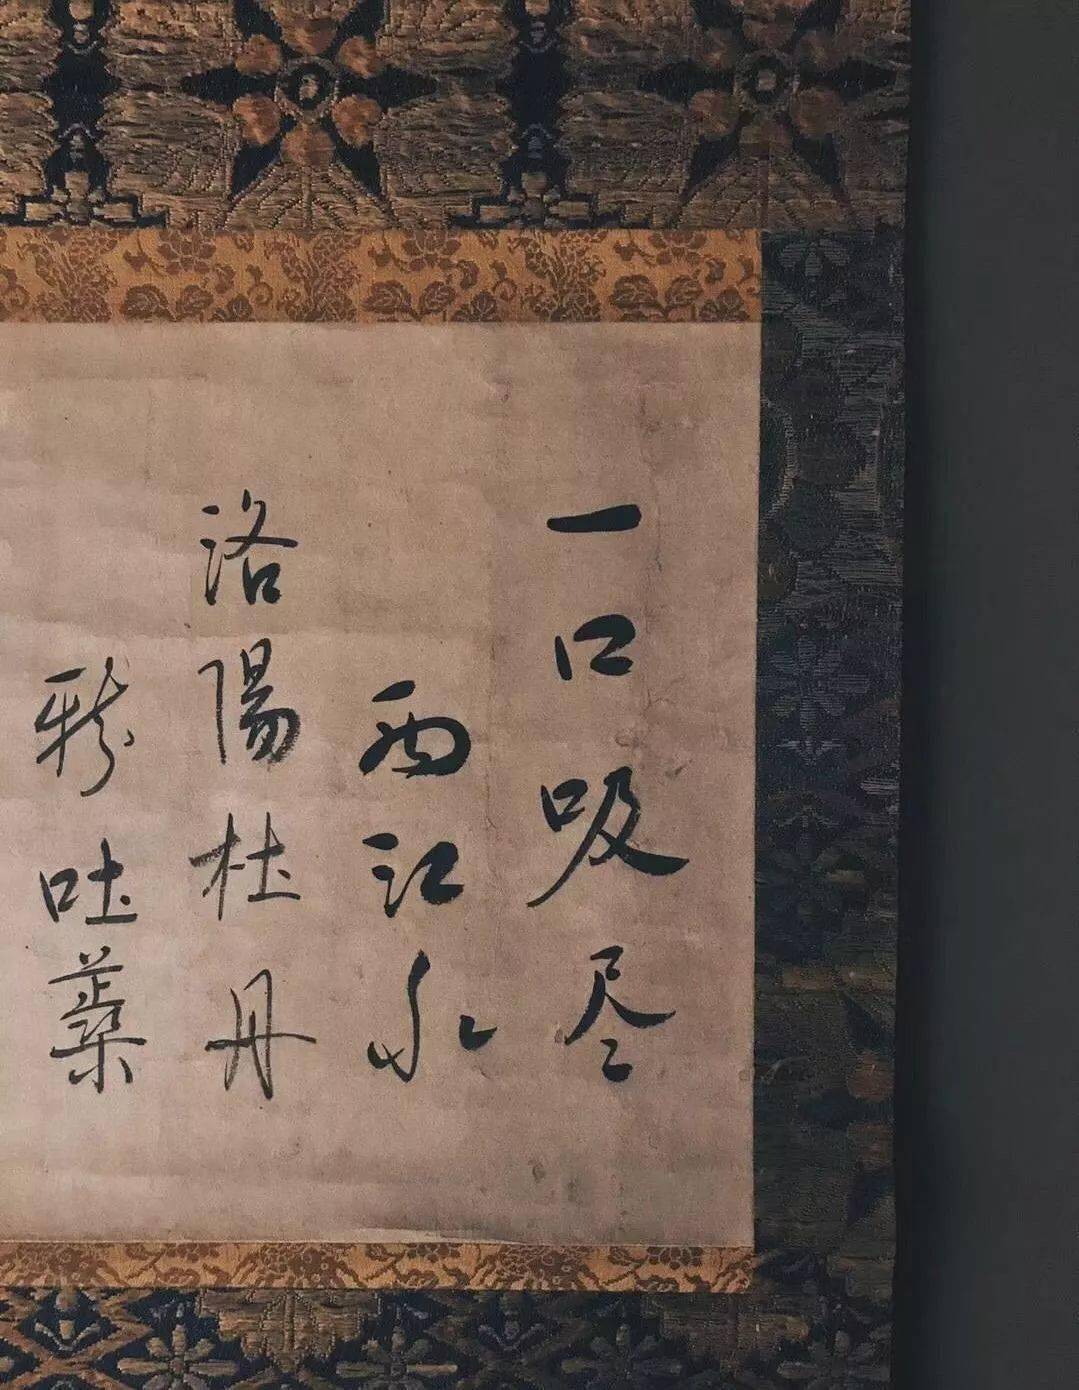 一口吸尽
西江水
洛陽牡丹
新吐蘂